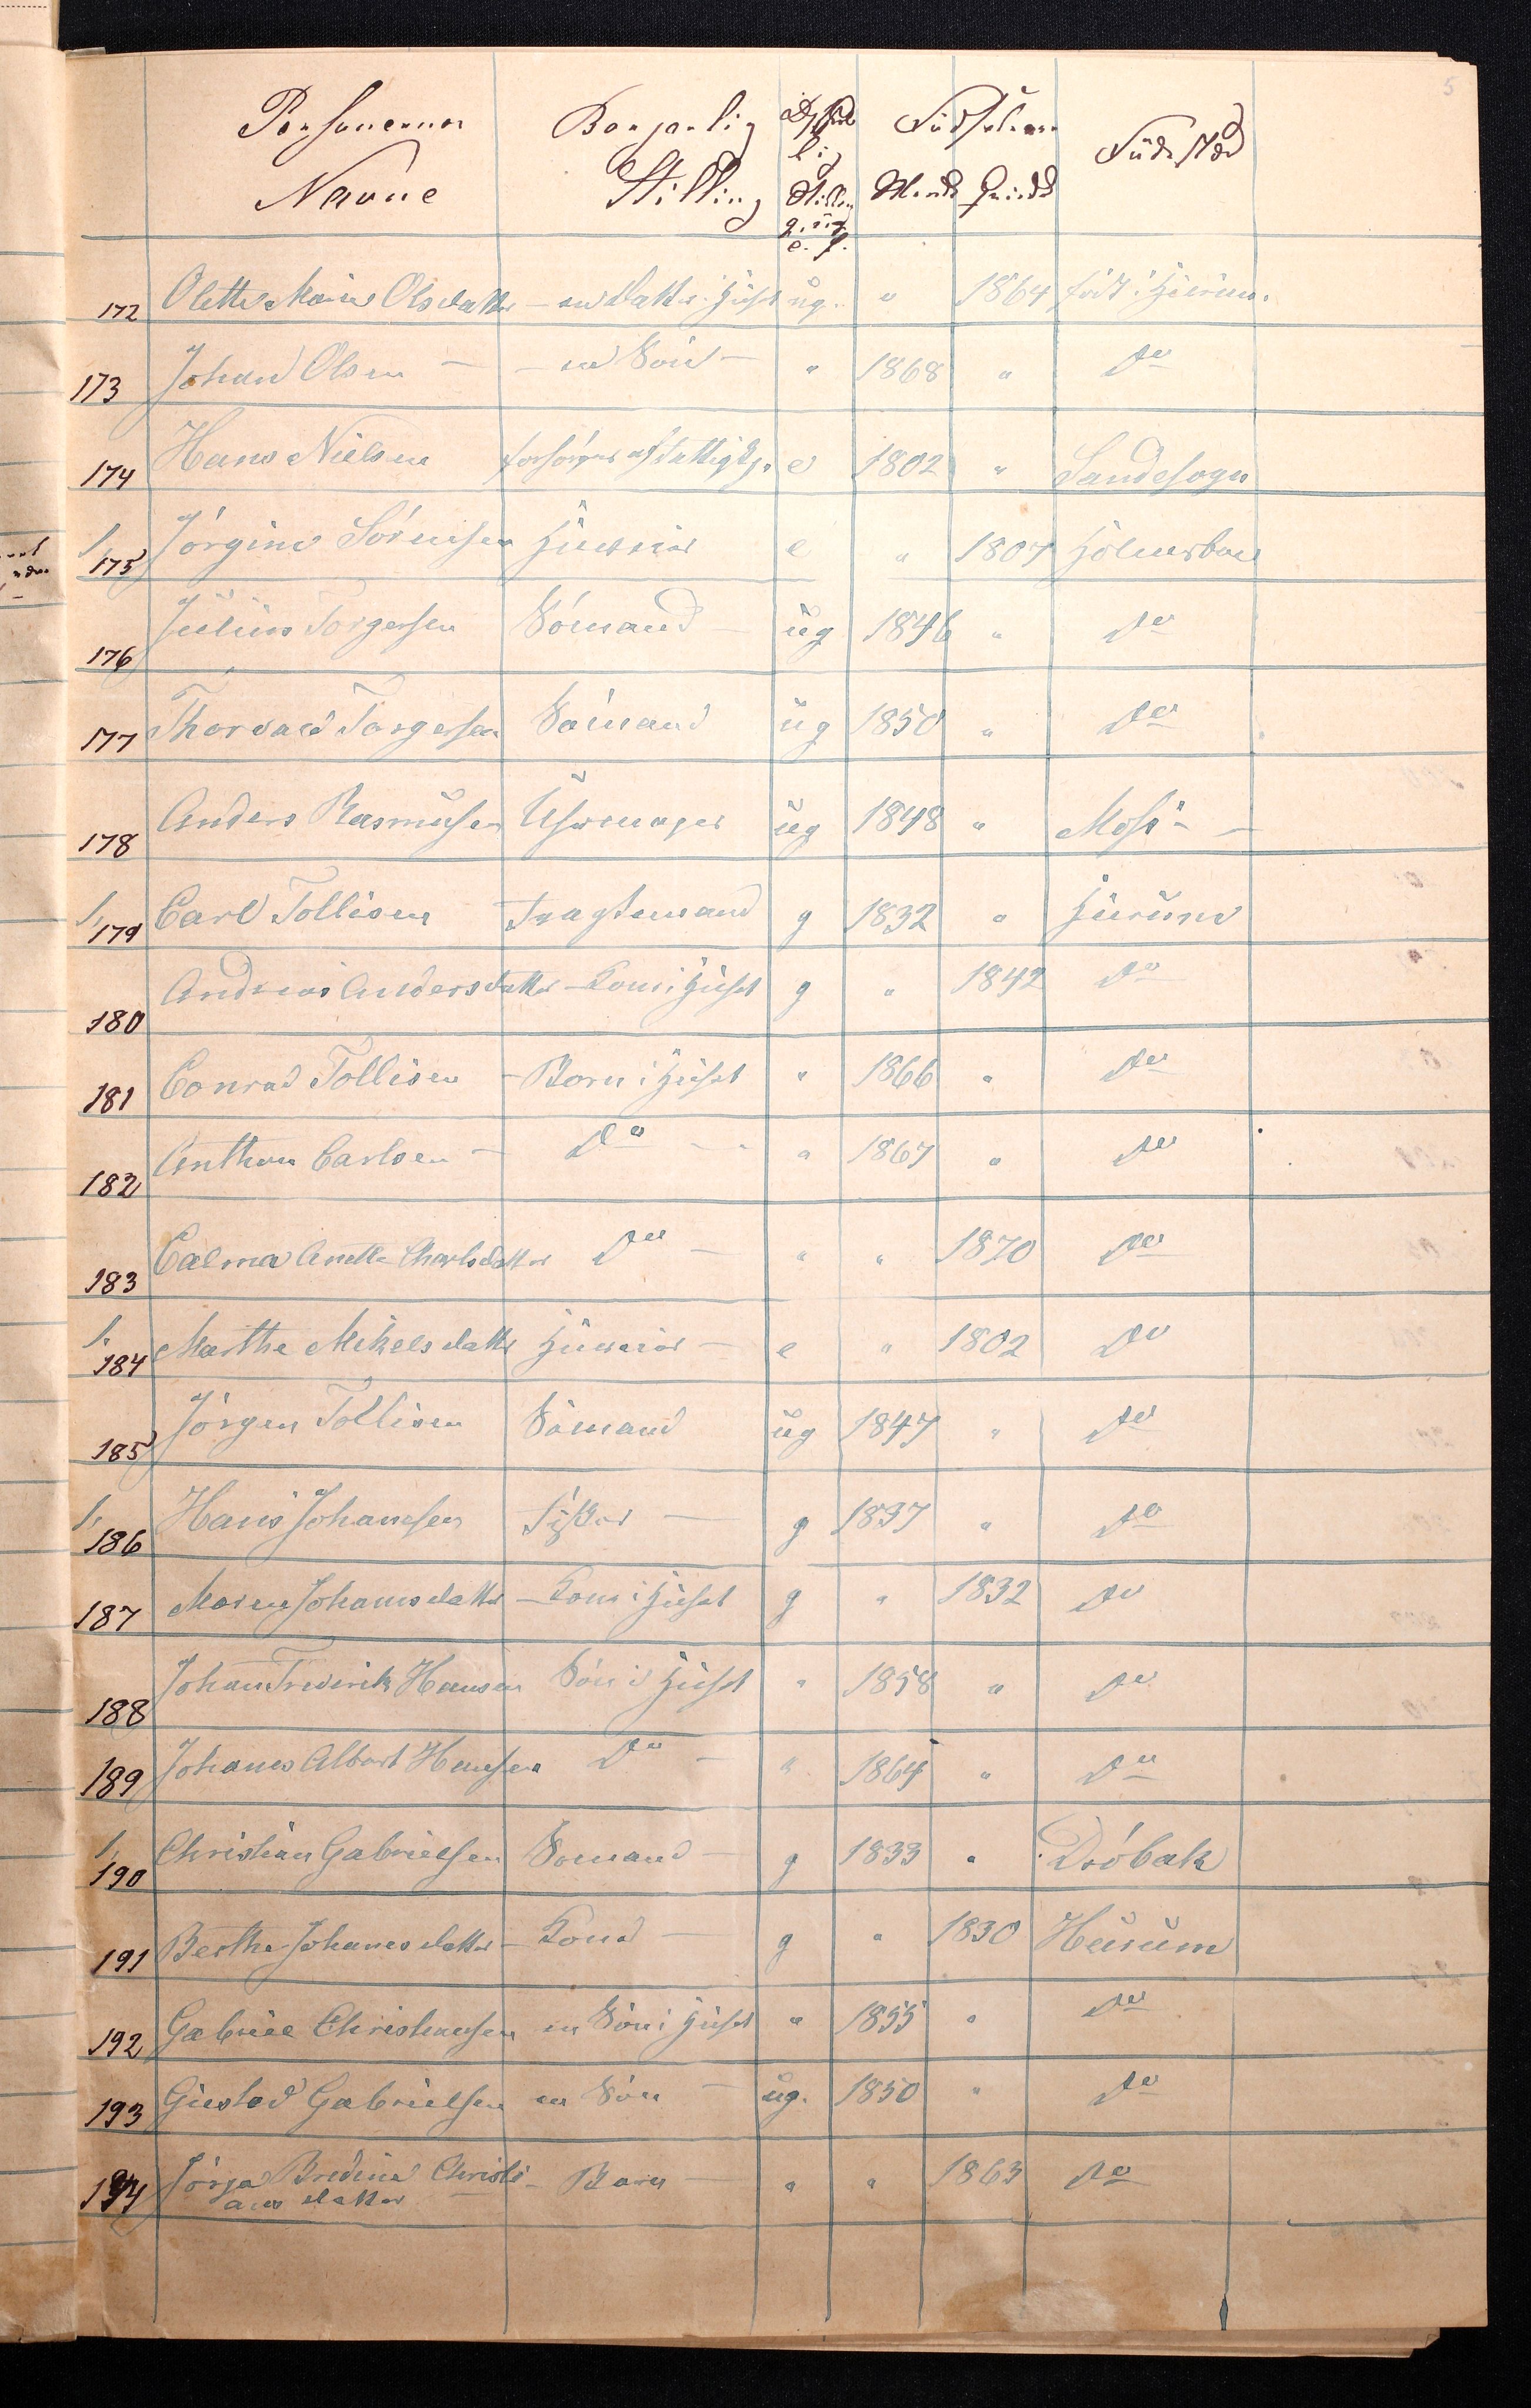 5
Personernes Navne Borgerlig Stilling Ægteskabelig Stilling g. ug. e. f. Födselsaar Mænds Qvinds Födested
172 Olette Maria Olsdatter - en Datter i Huset ug. " 1864 født i Hurum.
173 Johan Olsen - - en Sön - " 1868 " Do
174 Hans Nielsen forsörges af Fattigk. e 1802 " Sandesogn
1, 175 Jörgine Sörensen Huuseier e " 1807 Holmsboe
176 Julius Torgersen Sömand - ug 1846 " Do
177 Thorvald Torgersen Sömand ug 1850 " Do
178 Anders Rasmusen Uhrmager ug 1848 " Moss -
1, 179 Carl Tollisen Fragtemand g 1832 " Hurum
180 Andrea Andersdatter - Kone i Huset g " 1842 Do
181 Conrad Tollisen - Born i Huset " 1866 " Do
182 Anthon Carlsen - Do - " 1867 " Do
183 Calma Anette Charlsdatter Do - " " 1870 Do
1. 184 Marthe Mikelsdatter Huuseier - e " 1802 Do
185 Jörgen Tollisen Sömand ug 1847 " Do
1, 186 Hans Johansen Fisker - g 1837 " Do
187 Maren Johansdatter - Kone i Huset g " 1832 Do
188 Johan Frederik Hansen Sön i Huset " 1858 " Do
189 Johanes Albert Hansen Do - " 1864 " Do
1, 190 Christian Gabrielsen Sömand - g 1833 " Dröbak
191 Berthe Johanesdatter - Kone - g " 1830 Hurum
192 Gabriel Christiansen en Sön i Huset " 1855 " Do
193 Gustav Gabrielsen en Sön - ug. 1850 " Do
194 Jörga Bredine Christi- Barn - " " 1863 Do
ans datter